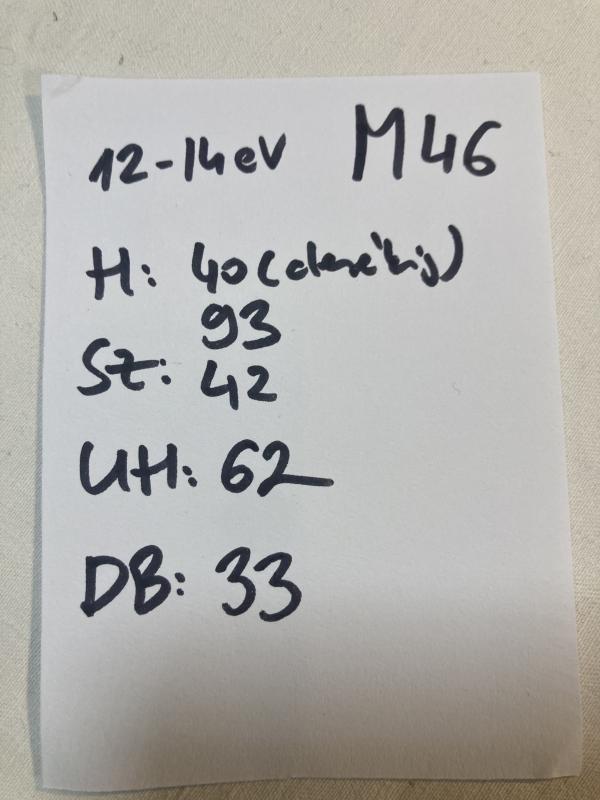 12-14 eV M46
H: 40 (derékig)
93
Sz: 42
UH: 62
DB: 33